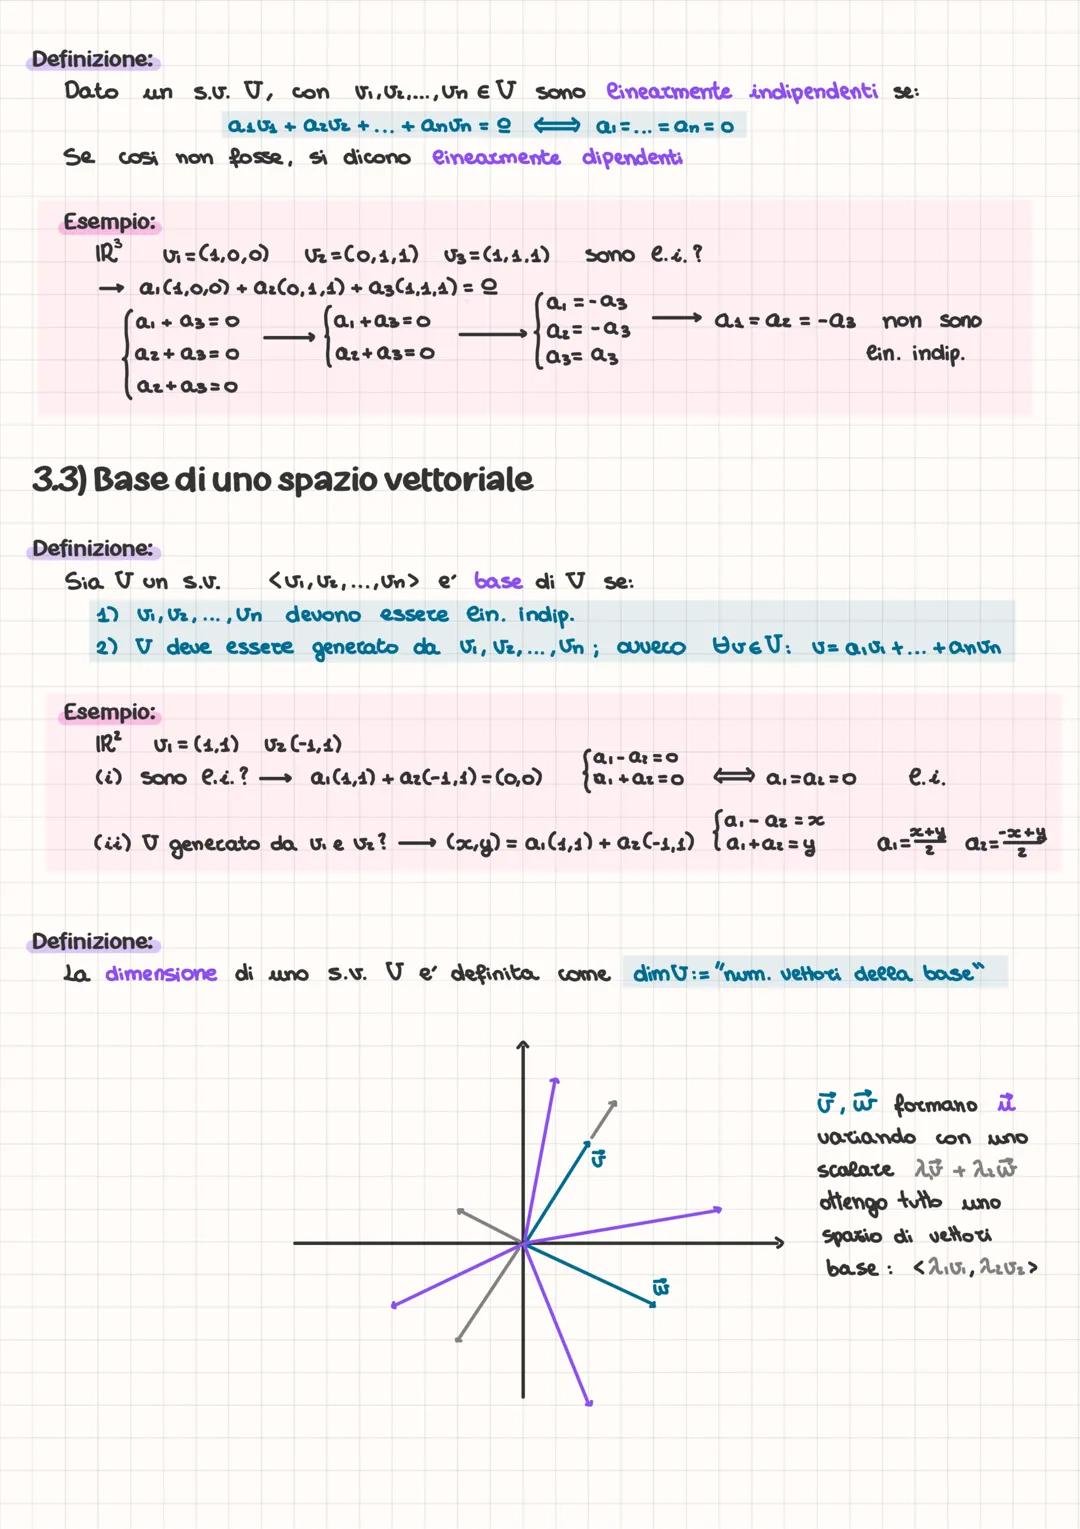 Definizione:
Dato un s.v. V, con v₁, v₂, ..., vₙ ∈ V sono linearmente indipendenti se:
a₁v₁ + a₂v₂ + ... + aₙvₙ = 0 ⟺ a₁ = ... = aₙ = 0
Se cosi non fosse, si dicono linearmente dipendenti
Esempio:
ℝ³ v₁ = (1,0,0) v₂ = (0,1,1) v₃ = (1,1.1) sono l.i.?
→ a₁(1,0,0) + a₂(0,1,1) + a₃(1,1,1) = 0
{ a₁ + a₃ = 0 → { a₁ + a₃ = 0 → { a₁ = -a₃ → a₁ = a₂ = -a₃ non sono
a₂ + a₃ = 0 a₂ + a₃ = 0 a₂ = -a₃ lin. indip.
a₂ + a₃ = 0 a₃ = a₃
3.3) Base di uno spazio vettoriale
Definizione:
Sia V un s.v. <v₁, v₂, ..., vₙ> e' base di V se:
1) v₁, v₂, ..., vₙ devono essere lin. indip.
2) V deve essere generato da v₁, v₂, ..., vₙ ; ovvero ∀v∈V: v = a₁v₁ + ... + aₙvₙ
Esempio:
ℝ² v₁ = (1,1) v₂ (-1,1)
(i) sono l.i.? → a₁(1,1) + a₂(-1,1) = (0,0) { a₁ - a₂ = 0 a₁ + a₂ = 0 ⟺ a₁ = a₂ = 0 l.i.
(ii) V generato da v₁ e v₂? → (x,y) = a₁(1,1) + a₂(-1,1) { a₁ - a₂ = x a₁ + a₂ = y a₁ = x+y/2 a₂ = -x+y/2
Definizione:
La dimensione di uno s.v. V e' definita come dim V := "num. vettori della base"
v⃗, w⃗ formano u⃗
variando con uno
scalare λ₁v⃗ + λ₂w⃗
ottengo tutto uno
spazio di vettori
base : <λ₁v₁, λ₂v₂>
v⃗
w⃗